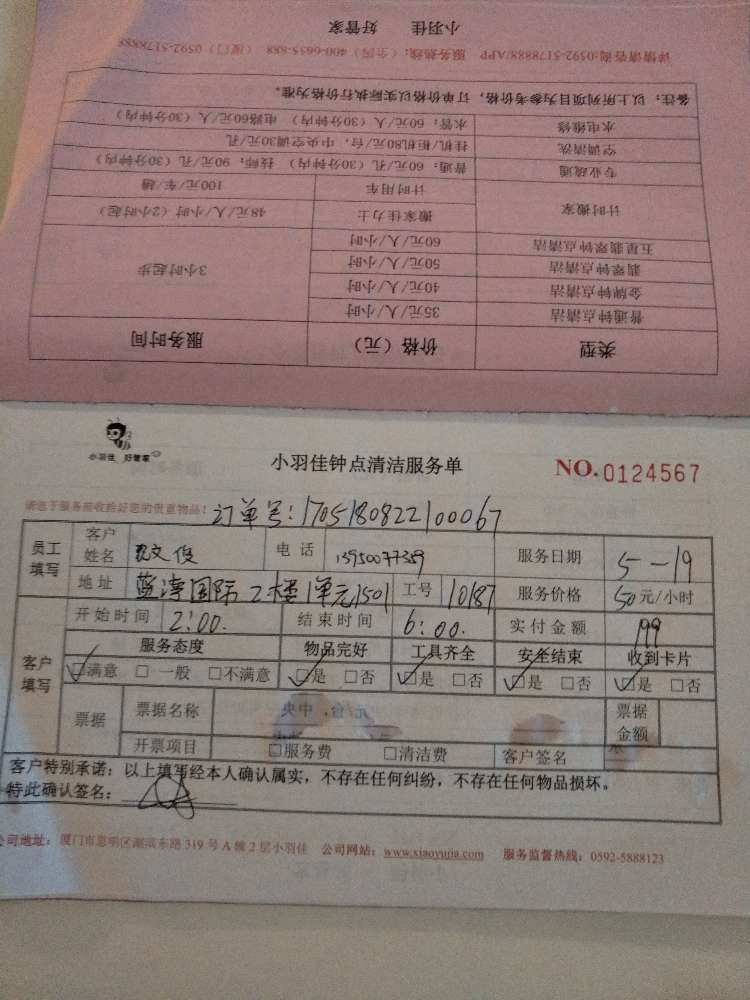 小羽佳 好管家
详情请咨询:0592-5178888/APP 服务热线:(全国) 400-6655-888 (厦门) 0592-5178888
备注:以上所列项目为参考价格,订单价格以实际执行价格为准。
水电维修 水管:60元/人(30分钟内) 电路60元/人(30分钟内)
空调清洗 挂机/柜机80元/台,中央空调30元/孔
专业疏通 普通:60元/孔(30分钟内) 技师:90元/孔(30分钟内)
计时搬家 计时用车 100元/车/趟
搬家佳力士 48元/人/小时(2小时起)
五星翡翠钟点清洁 60元/人/小时
翡翠钟点清洁 50元/人/小时 3小时起步
金牌钟点清洁 40元/人/小时
普通钟点清洁 35元/人/小时
类型 价格(元) 服务时间
小羽佳 好管家
小羽佳钟点清洁服务单
NO.0124567
请您于服务前收拾好您的贵重物品!
订单号:1705180822100067
员工填写 客户姓名 文俊 电话 13950077359 服务日期 5-19
地址 国际2楼1单元1501 工号 10187 服务价格 50元/小时
开始时间 2:00. 结束时间 6:00. 实付金额 199
客户填写 服务态度 物品完好 工具齐全 安全结束 收到卡片
☑满意 □一般 □不满意 ☑是 □否 ☑是 □否 ☑是 □否 ☑是 □否
票据 票据名称 票据金额
开票项目 □服务费 □清洁费 客户签名
客户特别承诺:以上填写经本人确认属实,不存在任何纠纷,不存在任何物品损坏。
特此确认签名:
公司地址:厦门市思明区湖滨东路319号A幢2层小羽佳 公司网站:www.xiaoyujia.com 服务监督热线:0592-5888123